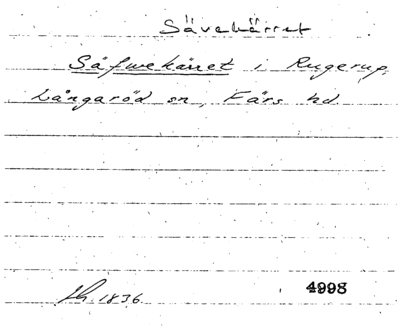 Sävekärret
Säfwekärret i Rugerup,
Långaröd sn, Färs hd.
1836.
4998